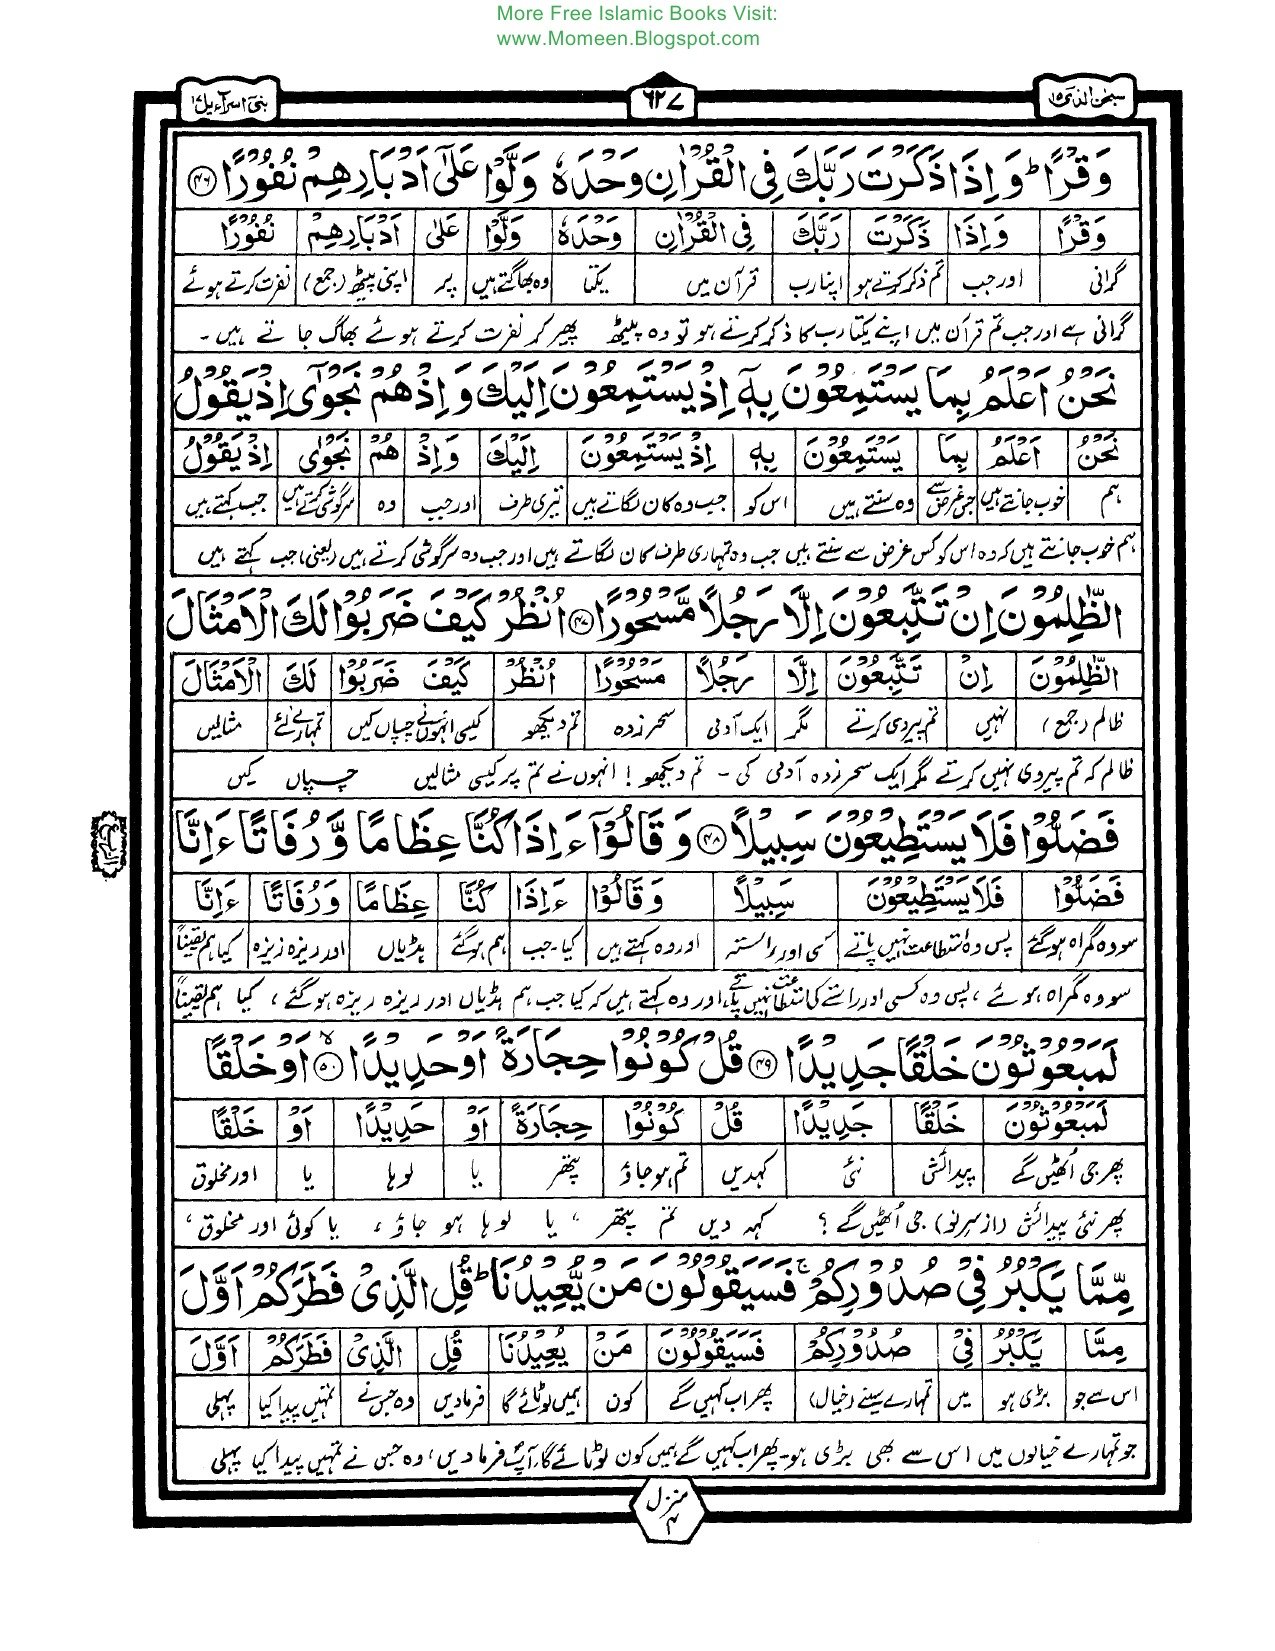 More Free Islamic Books Visit:
www.Momeen.Blogspot.com
سبحن الذی ۱۵
۶۲۷
بنی اسرآءیل ۱۷
وَقْرًا ؕ وَ اِذَا ذَكَرْتَ رَبَّكَ فِی الْقُرْاٰنِ وَحْدَهٗ وَلَّوْا عَلٰۤی اَدْبَارِهِمْ نُفُوْرًا ﴿۴۶﴾
وَقْرًا وَاِذَا ذَكَرْتَ رَبَّكَ فِی الْقُرْاٰنِ وَحْدَهٗ وَلَّوْا عَلٰی اَدْبَارِهِمْ نُفُوْرًا
گرانی اور جب تم ذکر کرتے ہو اپنا رب قرآن میں یکتا وہ بھاگتے ہیں پر اپنی پیٹھ (جمع) نفرت کرتے ہوئے
گرانی ہے اور جب تم قرآن میں اپنے یکتا رب کا ذکر کرتے ہو تو وہ پیٹھ پھیر کر نفرت کرتے ہوئے بھاگ جاتے ہیں ۔
نَحْنُ اَعْلَمُ بِمَا یَسْتَمِعُوْنَ بِهٖۤ اِذْ یَسْتَمِعُوْنَ اِلَیْكَ وَ اِذْ هُمْ نَجْوٰۤی اِذْ یَقُوْلُ
نَحْنُ اَعْلَمُ بِمَا یَسْتَمِعُوْنَ بِهٖ اِذْ یَسْتَمِعُوْنَ اِلَیْكَ وَاِذْ هُمْ نَجْوٰی اِذْ یَقُوْلُ
ہم خوب جانتے ہیں جس غرض سے وہ سنتے ہیں اس کو جب وہ کان لگاتے ہیں تیری طرف اور جب وہ سرگوشی کرتے ہیں جب کہتے ہیں
ہم خوب جانتے ہیں کہ وہ اس کو کس غرض سے سنتے ہیں جب وہ تمہاری طرف کان لگاتے ہیں اور جب وہ سرگوشی کرتے ہیں (یعنی) جب کہتے ہیں
الظّٰلِمُوْنَ اِنْ تَتَّبِعُوْنَ اِلَّا رَجُلًا مَّسْحُوْرًا ﴿۴۷﴾ اُنْظُرْ كَیْفَ ضَرَبُوْا لَكَ الْاَمْثَالَ
الظّٰلِمُوْنَ اِنْ تَتَّبِعُوْنَ اِلَّا رَجُلًا مَسْحُوْرًا اُنْظُرْ كَیْفَ ضَرَبُوْا لَكَ الْاَمْثَالَ
ظالم (جمع) نہیں تم پیروی کرتے مگر ایک آدمی سحر زدہ تم دیکھو کیسی انہوں نے چسپاں کیں تمہارے لئے مثالیں
ظالم کہ تم پیروی نہیں کرتے مگر ایک سحر زدہ آدمی کی ۔ تم دیکھو ! انہوں نے تم پر کیسی مثالیں چسپاں کیں
فَضَلُّوْا فَلَا یَسْتَطِیْعُوْنَ سَبِیْلًا ﴿۴۸﴾ وَ قَالُوْۤا ءَاِذَا كُنَّا عِظَامًا وَّ رُفَاتًا ءَاِنَّا
فَضَلُّوْا فَلَا یَسْتَطِیْعُوْنَ سَبِیْلًا وَقَالُوْا ءَاِذَا كُنَّا عِظَامًا وَرُفَاتًا ءَاِنَّا
سو وہ گمراہ ہوگئے پس وہ استطاعت نہیں پاتے کسی اور راستہ اور وہ کہتے ہیں کیا۔جب ہم ہوگئے ہڈیاں اور ریزہ ریزہ کیا ہم یقیناً
سو وہ گمراہ ہوئے ، پس وہ کسی اور راستے کی استطاعت نہیں پاتے، اور وہ کہتے ہیں کہ کیا جب ہم ہڈیاں اور ریزہ ریزہ ہوگئے ، کیا ہم یقیناً
لَمَبْعُوْثُوْنَ خَلْقًا جَدِیْدًا ﴿۴۹﴾ قُلْ كُوْنُوْا حِجَارَةً اَوْ حَدِیْدًا ﴿۵۰﴾ۙ اَوْ خَلْقًا
لَمَبْعُوْثُوْنَ خَلْقًا جَدِیْدًا قُلْ كُوْنُوْا حِجَارَةً اَوْ حَدِیْدًا اَوْ خَلْقًا
پھر جی اُٹھیں گے پیدائش نئی کہدیں تم ہوجاؤ پتھر یا لوہا یا اور مخلوق
پھر نئی پیدائش (از سرنو) جی اُٹھیں گے ؟ کہہ دیں تم پتھر ، یا لوہا ہو جاؤ ، یا کوئی اور مخلوق ،
مِّمَّا یَكْبُرُ فِیْ صُدُوْرِكُمْ ۚ فَسَیَقُوْلُوْنَ مَنْ یُّعِیْدُنَا ؕ قُلِ الَّذِیْ فَطَرَكُمْ اَوَّلَ
مِمَّا یَكْبُرُ فِیْ صُدُوْرِكُمْ فَسَیَقُوْلُوْنَ مَنْ یُعِیْدُنَا قُلِ الَّذِیْ فَطَرَكُمْ اَوَّلَ
اس سے جو بڑی ہو میں تمہارے سینے (خیال) پھر اب کہیں گے کون ہمیں لوٹائے گا فرمادیں وہ جس نے تمہیں پیدا کیا پہلی
جو تمہارے خیالوں میں اس سے بھی بڑی ہو۔ پھر اب کہیں گے ہمیں کون لوٹائے گا، آپ فرمادیں ، وہ جس نے تمہیں پیدا کیا پہلی
منزل ۴